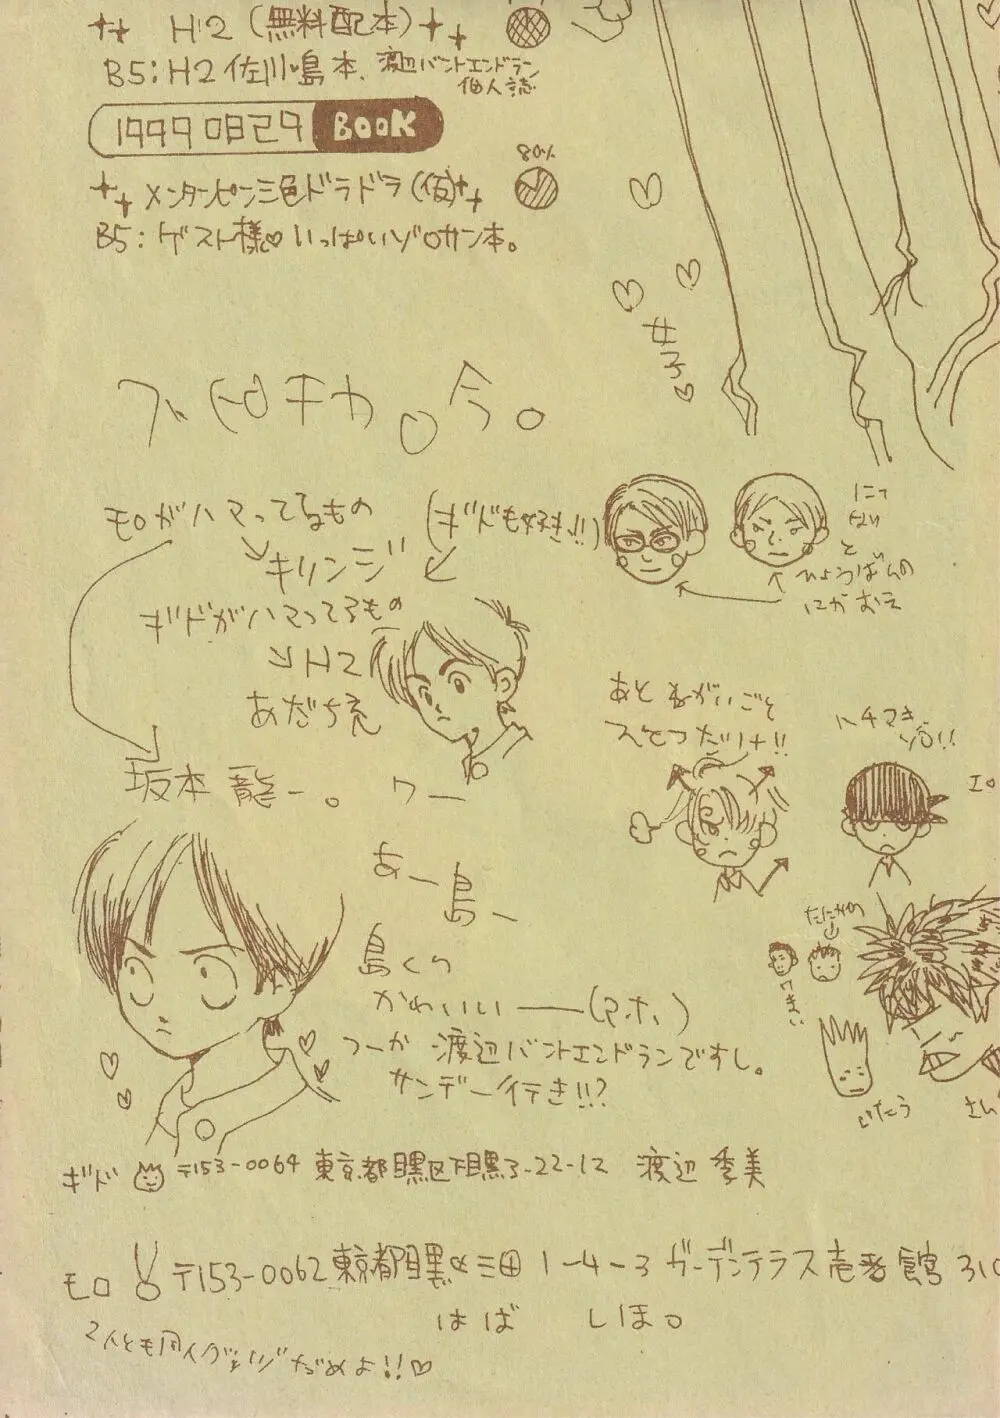 H2(無料配本)
B5:H2佐川♥島本、渡辺バントエンドラン
個人誌
19990829 BOOK
80%
メンタンピン三色ドラドラ(仮)
B5:ゲスト様♡いっぱいゾロサン本。
女子♡
今。
モロがハマってるもの
(ギドも好き!!)
キリンジ
ギドがハマってるもの
H2
あだち充
坂本龍一。
ワー
にて
ない
と
ひょうばんの
にがおえ
あとねがいごと
ひとつだけ!!
ハチマキ
ゾロ!!
エロ
あー島ー
島くり
かわいいー(アホ)
つーか渡辺バントエンドランですし。
サンデー行き!!?
ウまい
いたう
さん
ギド 〒153-0064 東京都目黒区下目黒3-22-12 渡辺季美
モロ 〒153-0062 東京都目黒区三田1-4-3ガーデンテラス壱番館310
はば しほ。
2人とも同人グッズだめよ!!♡